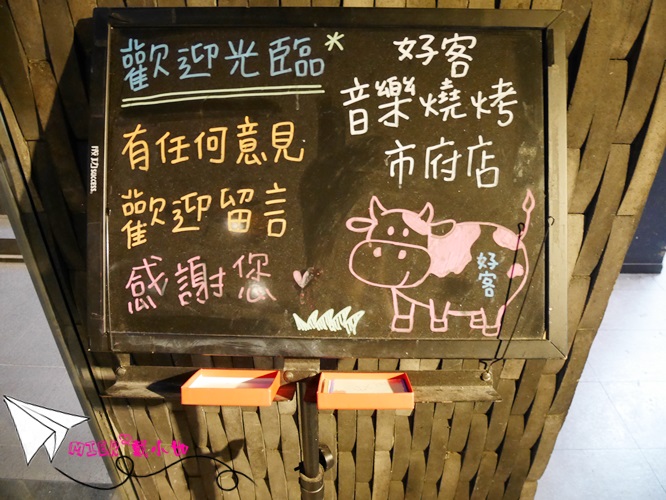 歡迎光臨*
有任何意見
歡迎留言
感謝您
好客
音樂燒烤
市府店
好客
成功 success.